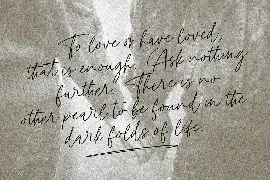 To love or have loved,
that is enough. Ask nothing
further. There is no
other pearl to be found in the
dark folds of life.